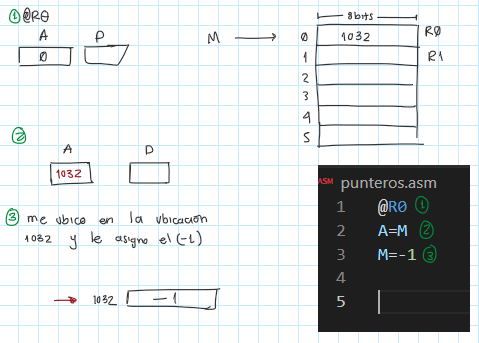 ① @R0
A D
0
M
8bits
0 1032 R0
1 R1
2
3
4
5
②
A D
1032
③ me ubico en la ubicacion
1032 y le asigno el (-1)
1032 -1
ASM punteros.asm
1 @R0 ①
2 A=M ②
3 M=-1 ③
4
5